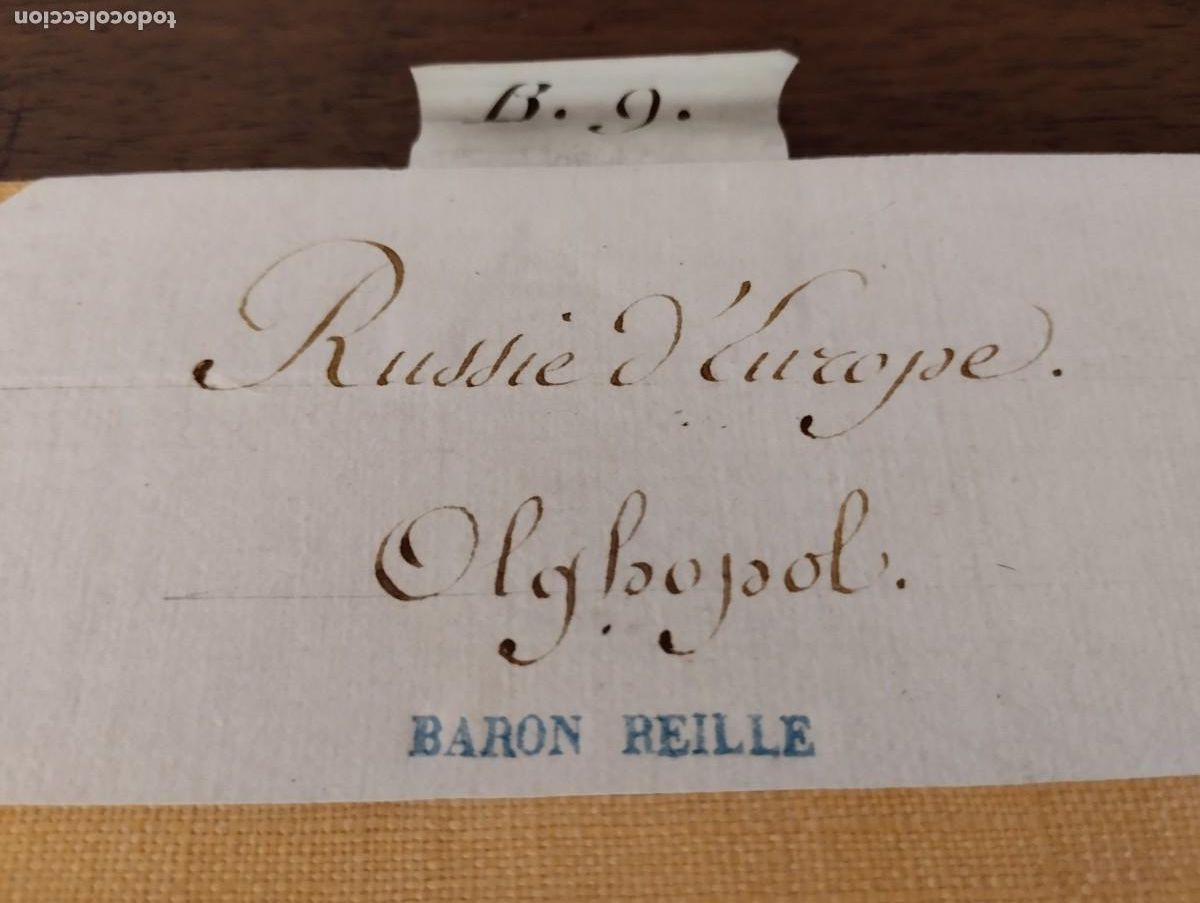 todocoleccion
B. 9.
Russie d'Europe.
Olghopol.
BARON REILLE